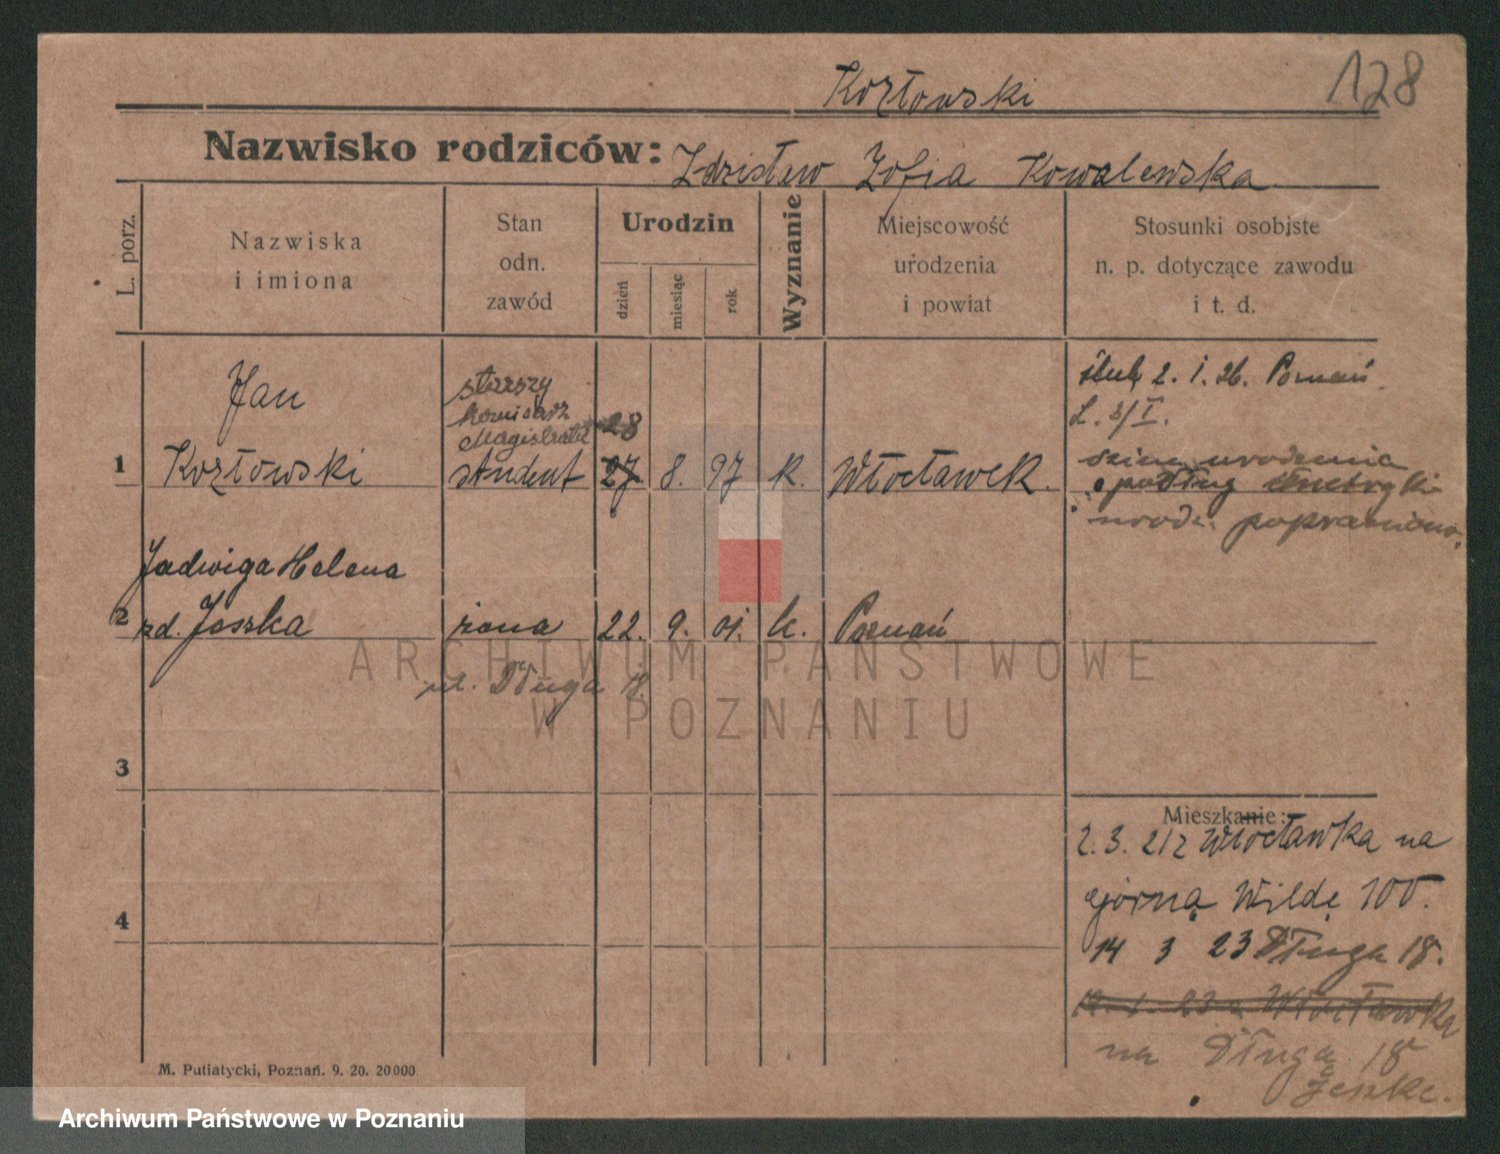 128
Kozłowski
Nazwisko rodziców: Zdzisław Zofia Kowalewska
L. porz.
Nazwiska i imiona
Stan odn. zawód
Urodzin
dzień
miesiąc
rok
Wyznanie
Miejscowość urodzenia i powiat
Stosunki osobiste n. p. dotyczące zawodu i t. d.
Jan
starszy
komisarz
Magistratu 28
1 Kozłowski student 27 8. 97 k. Włocławek.
ślub 2. 1. 26. Poznań
L. 3/I.
urodzenia
podług metryki
urodz. poprawiono.
Jadwiga Helena
2 zd. Jeszka żona 22. 9. 01. k. Poznań
ul. Długa 18.
3
4
Mieszkanie:
2. 3. 21 z Włocławka na
Górną Wildę 100.
14 3 23 Długa 18.
23 z Włocławka
na Długa 18
Jeszke.
M. Putiatycki, Poznań. 9. 20. 20000
ARCHIWUM PAŃSTWOWE
W POZNANIU
Archiwum Państwowe w Poznaniu